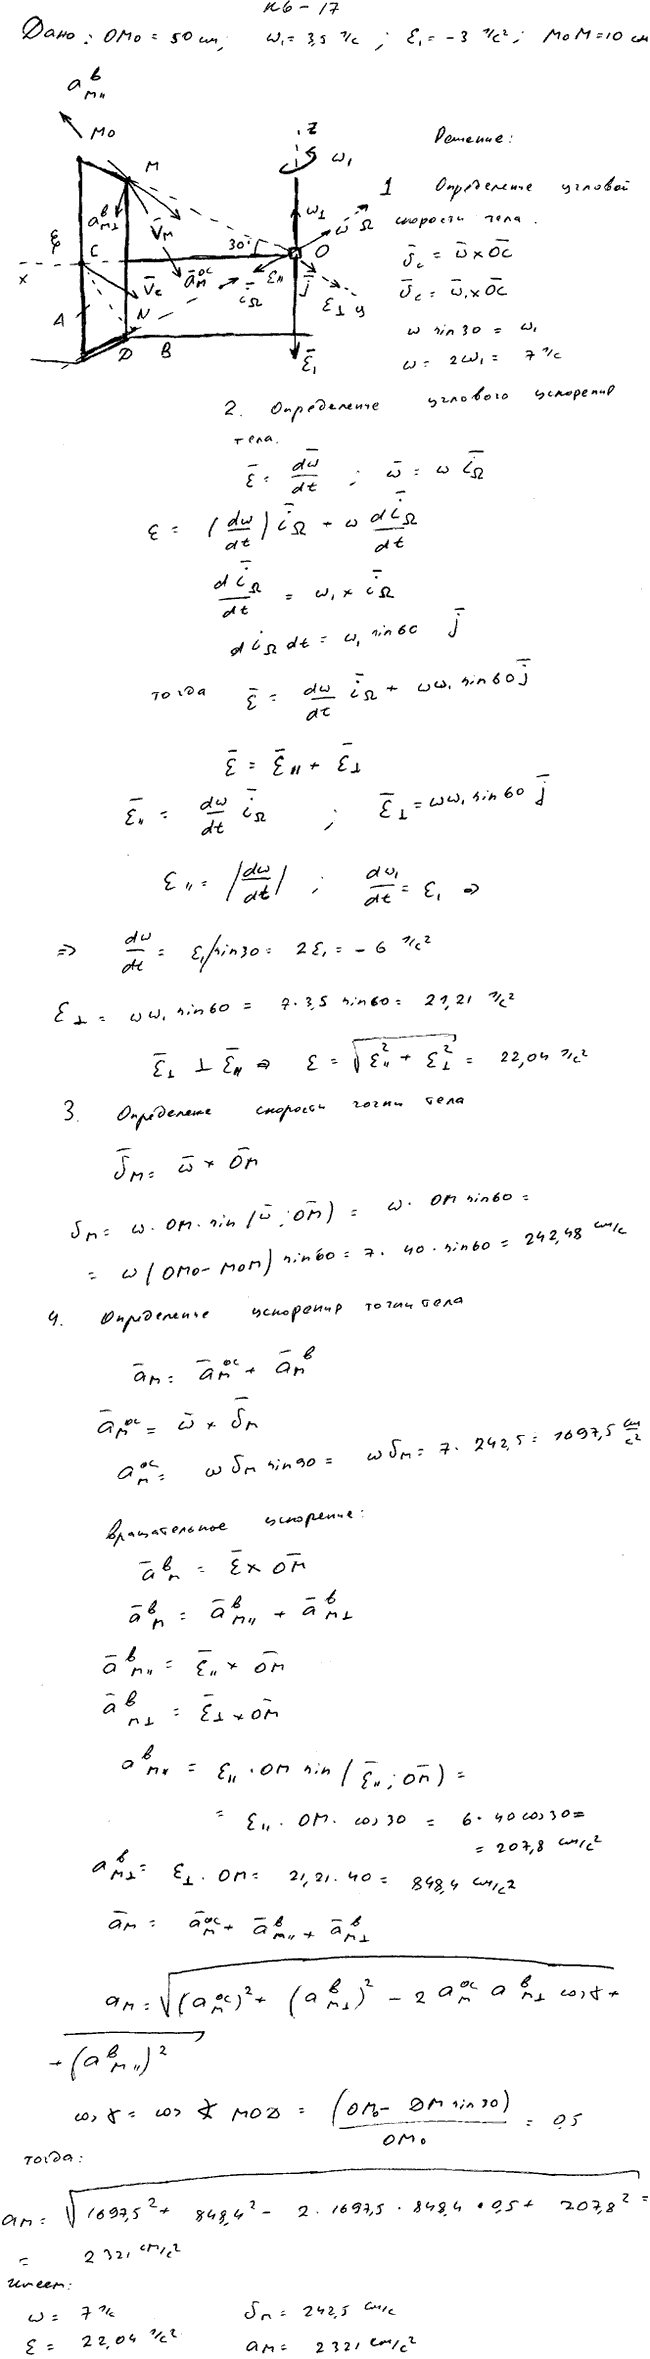 К6 - 17
Дано: OM₀ = 50 см; ω₁ = 3,5 1/с; ε₁ = -3 1/с²; M₀M = 10 см
a^в_M||
M₀
M
Z
ω₁
a^в_M⊥
V̄_M
ω⊥
ω Ω
30°
O
ξ
C
x
V̄_c
ā^ос_M
ī_Ω
ε||
j̄
ε⊥ y
A
N
D
B
ε̄₁
Решение:
1 Определение угловой
скорости тела.
ῡ_c = ω̄ × O̅C̅
ῡ_c = ω̄₁ × O̅C̅
ω sin 30 = ω₁
ω = 2ω₁ = 7 1/с
2. Определение углового ускорения
тела.
ε̄ = dω̄/dt ; ω̄ = ω ī_Ω
ε = (dω/dt) ī_Ω + ω dī_Ω/dt
dī_Ω/dt = ω₁ × ī_Ω
d i_Ω dt = ω₁ sin 60 j̄
тогда ε̄ = dω/dt ī_Ω + ωω₁ sin 60 j̄
ε̄ = ε̄|| + ε̄⊥
ε̄|| = dω/dt ī_Ω ; ε̄⊥ = ωω₁ sin 60 j̄
ε|| = |dω/dt| ; dω₁/dt = ε₁ ⇒
⇒ dω/dt = ε₁/sin 30 = 2ε₁ = -6 1/с²
ε⊥ = ωω₁ sin 60 = 7·3,5 sin 60 = 21,21 1/с²
ε̄⊥ ⊥ ε̄|| ⇒ ε = √(ε||² + ε⊥²) = 22,04 1/с²
3. Определение скорости точки тела
ῡ_M = ω̄ × O̅M̅
υ_M = ω · OM · sin(ω̄; O̅M̅) = ω · OM sin 60 =
= ω(OM₀ - M₀M) sin 60 = 7 · 40 · sin 60 = 242,48 см/с
4. Определение ускорения точки тела
ā_M = ā^ос_M + ā^в_M
ā^ос_M = ω̄ × ῡ_M
a^ос_M = ω υ_M sin 90 = ω υ_M = 7 · 242,5 = 1697,5 см/с²
вращательное ускорение:
ā^в_M = ε̄ × O̅M̅
ā^в_M = ā^в_M|| + ā^в_M⊥
ā^в_M|| = ε̄|| × O̅M̅
ā^в_M⊥ = ε̄⊥ × O̅M̅
a^в_M|| = ε|| · OM sin(ε̄||; O̅M̅) =
= ε|| · OM · cos 30 = 6 · 40 cos 30 =
= 207,8 см/с²
a^в_M⊥ = ε⊥ · OM = 21,21 · 40 = 848,4 см/с²
ā_M = ā^ос_M + ā^в_M|| + ā^в_M⊥
a_M = √((a^ос_M)² + (a^в_M⊥)² - 2 a^ос_M a^в_M⊥ cos γ +
+ (a^в_M||)²)
cos γ = cos ∢ MOD = (OM₀ - DM sin 30)/OM₀ = 0,5
тогда:
a_M = √(1697,5² + 848,4² - 2 · 1697,5 · 848,4 · 0,5 + 207,8²) =
= 2321 см/с²
имеем:
ω = 7 1/с υ_M = 242,5 см/с
ε = 22,04 1/с² a_M = 2321 см/с²